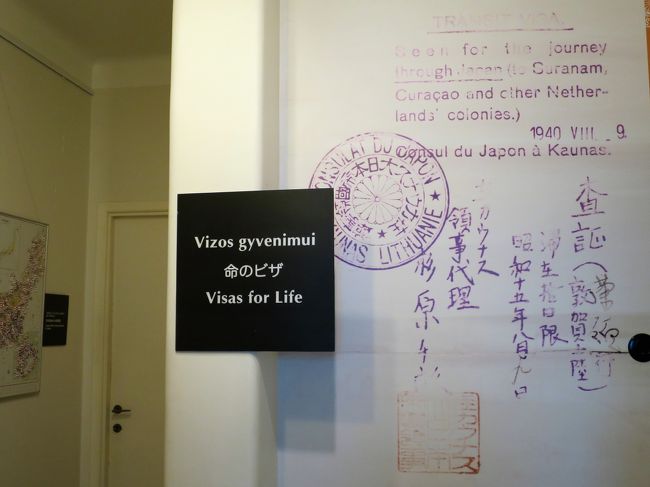 TRANSIT VISA.
Seen for the journey
through Japan (to Suranam,
Curaçao and other Nether-
lands' colonies.)
1940 VIII. 9.
Consul du Japon à Kaunas.
CONSULAT DU JAPON
KAUNAS LITHUANIE
Vizos gyvenimui
命のビザ
Visas for Life
査証
(敦賀上陸)
滞在拾日限
昭和十五年八月九日
在カウナス
領事代理
杉原千